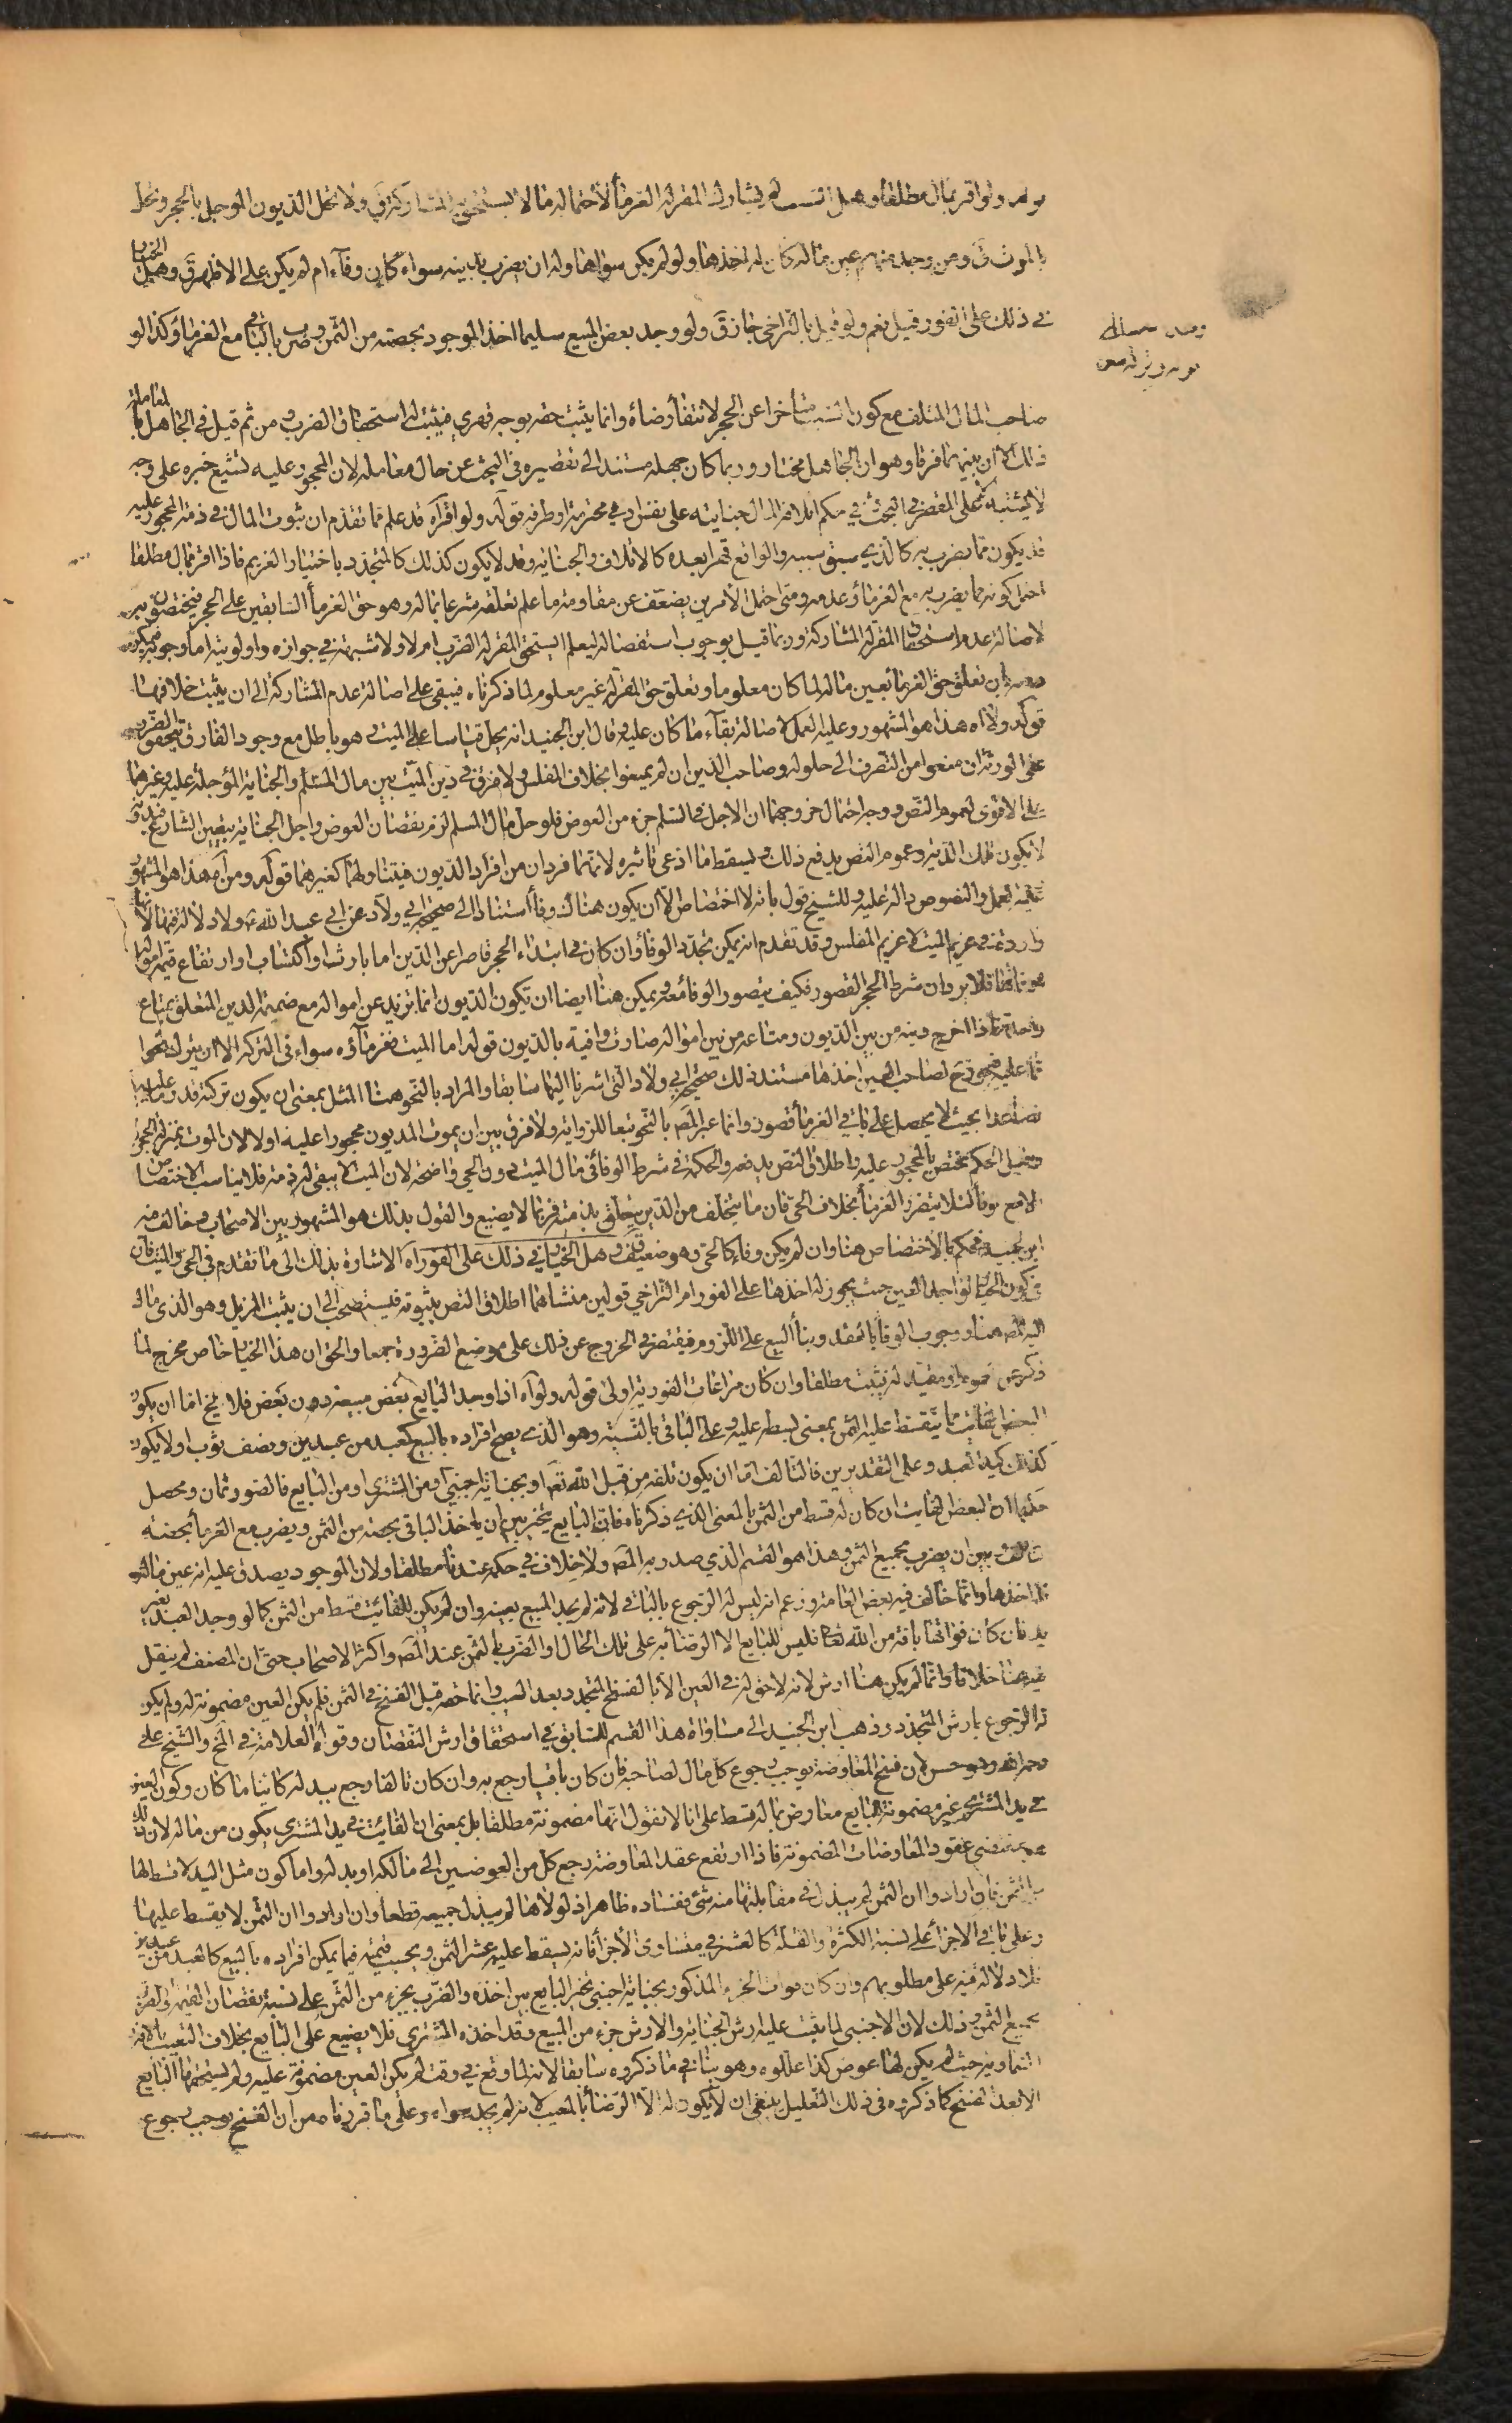 ولو اقر بمال مطلقا وجهل السبب لم يشارك المقر له الغرمأ لاحتماله ما لا يستحق به المشاركة ق ولا تحل الديون الموجل بالحجر وتحل
بالموت ق ومن وجد منهم عين ماله كان له اخذها ولو لم يكن سواها وله ان يضرب بدينه سواء كان وفآء ام لم يكن على الاظهر ق وهل الخيار
في ذلك على الفور قيل نعم ولو قيل بالتراخي جاز ق ولو وجد بعض المبيع سليما اخذ الموجود بحصته من الثمن وضرب بالباقي مع الغرمأ وكذا لو
صاحب المال المتلف مع كون السبب متأخرا عن الحجر لانتفأ رضاه وانما يثبت حقه بوجه قهري فيثبت له استحقاق الضرب ومن ثم قيل في الجاهل بالمعاملة
ذلك الا ان بينهما فرقا وهو ان الجاهل مختار وربما كان جهله مستندا الى تقصيره في البحث عن حال معامله لان المحجور عليه تشيع خبره على وجه
لا يشتبه الا على المقصر في البحث في حكم اتلاف المال جنايته على نفس ادمي محترمة او طرفه قوله ولو اقر آه قد علم مما تقدم ان ثبوت المال في ذمة المحجور عليه
قد يكون مما يضرب به كالذي سبق سببه والواقع قهرا بعده كالاتلاف والجناية وقد لا يكون كذلك كالمتجدد باختيار الغريم فاذا اقر بمال مطلقا
احتمل كونه مما يضرب به مع الغرمأ وعدمه ومتى احتمل الامرين يضعف عن مقاومة ما علم تعلقه شرعا بماله وهو حق الغرمأ السابقين على الحجر فيختصون به
لاصالة عدم استحقاق المقر له المشاركة وربما قيل بوجوب استفصاله ليعلم ايستحق المقر له الضرب ام لا ولا شبهة في جوازه واولويته اما وجوبه
بان تعلق حق الغرمأ بعين ماله لما كان معلوما وتعلق حق المقر له غير معلوم لما ذكرناه فيبقى على اصالة عدم المشاركة الى ان يثبت خلافها
قوله ولا آه هذا هو المشهور وعليه العمل لاصالة بقآء ما كان عليه وقال ابن الجنيد انه يحل قياسا على الميت وهو باطل مع وجود الفارق بتحقق الضرر
على الورثة ان منعوا من التصرف الى حلوله وصاحب الدين ان لم يمنعوا بخلاف المفلس ولا فرق في دين الميت بين مال السلم والجناية المؤجلة عليه وغيرهما
على الاقوى لعموم النص ووجه احتمال خروجهما ان الاجل في السلم جزء من العوض فلو حل مال السلم لزم نقصان العوض واجل الجناية بتعيين الشارع
لا يكون تلك الدية وعموم النص يدفع ذلك ويسقط ما ادعى تاثيره لانهما فردان من افراد الديون فيتناولهما كغيرهما قوله ومن آه هذا هو المشهور
العمل والنصوص دالة عليه وللشيخ قول بانه لا اختصاص الا ان يكون هناك وفأ استنادا الى صحيحة ابي ولاد عن ابي عبد الله ع ولا دلالة فيها لانها
واردة في غريم الميت لا غريم المفلس وقد تقدم انه يمكن تجدد الوفأ وان كان في ابتداء الحجر قاصرا عن الدين اما بارث او اكتساب او ارتفاع قيمة امواله
فلا يرد ان شرط الحجر القصور فكيف يتصور الوفأ معه ويمكن هنا ايضا ان تكون الديون انما تزيد عن امواله مع ضميمة الدين المتعلق بمتاع
فاذا اخرج دينه من بين الديون ومتاعه من بين امواله صارت وافية بالديون قوله اما الميت فغرمآؤه سواء في التركة الا ان يترك نحوا
مما عليه فيجوز ح لصاحب العين اخذها مستند ذلك صحيحة ابي ولاد التي اشرنا اليها سابقا والمراد بالنحو هنا المثل بمعنى ان يكون تركته قدر ما عليه
فصاعدا بحيث لا يحصل على باقي الغرمأ قصور وانما عبر المص بالنحو تبعا للرواية ولا فرق بين ان يموت المديون محجورا عليه او لا لان الموت بمنزلة الحجر
وقيل الحكم مختص بالمحجور عليه واطلاق النص يدفعه والحكمة في شرط الوفأ في مال الميت دون الحي واضحة لان الميت لا يبقى له ذمة فلا يناسب الاختصاص
الا مع الوفأ لئلا يتضرر الغرمأ بخلاف الحي فان ما يتخلف من الدين يتعلق بذمته فربما لا يضيع والقول بذلك هو المشهور بين الاصحاب وخالف فيه
ابن الجنيد فحكم بالاختصاص هنا وان لم يكن وفاء كالحي وهو ضعيف قوله وهل الخيار في ذلك على الفور آه الاشارة بذلك الى ما تقدم في الحي والميت فان
في كون الخيار لواجد العين حيث يجوز له اخذها على الفور ام التراخي قولين منشاهما اطلاق النص بثبوته فيستصحب الى ان يثبت المزيل وهو الذي مال
اليه المص هنا ووجوب الوفأ بالعقد وبنأ البيع على اللزوم فيقتصر في الخروج عن ذلك على موضع الضرورة جمعا والحق ان هذا الخيار خاص مخرج لما
ذكر عن عمومه ومقيد له فيثبت مطلقا وان كان مراعات الفورية اولى قوله ولو آه اذا وجد البايع بعض مبيعه دون بعض فلا يخ اما ان يكون
البعض الفايت مما يتقسط عليه الثمن بمعنى بسطه عليه وعلى الباقي بالنسبة وهو الذي يصح افراده بالبيع كعبد من عبدين ونصف ثوب او لا يكون
كذلك كيد العبد وعلى التقديرين فالتالف اما ان يكون تلفه من قبل الله تعم او بجناية اجنبي او من المشتري او من البايع فالصور ثمان ومحصل
حكمها ان البعض الفايت ان كان له قسط من الثمن بالمعنى الذي ذكرناه فان البايع يتخير بين ان ياخذ الباقي بحصته من الثمن ويضرب مع الغرمأ بحصة
التالف وبين ان يضرب بجميع الثمن وهذا هو القسم الذي صدر به المص ولا خلاف في حكمه عندنا مطلقا ولان الموجود يصدق عليه انه عين ماله
فله اخذها وانما خالف فيه بعض العامة وزعم انه ليس له الرجوع بالباقي لانه لم يجد المبيع بعينه وان لم يكن للفائت قسط من الثمن كما لو وجد العبد بغير
يد فان كان فواتها بافة من الله تعا فليس للبايع الا الرضأ به على تلك الحال او الضرب بالثمن عند المص واكثر الاصحاب حتى ان المصنف لم ينقل
فيه هنا خلافا وانما لم يكن هنا ارش لانه لا حق له في العين الا بالفسخ المتجدد بعد العيب وانما حقه قبل الفسخ في الثمن فلم يكن العين مضمونة له ولم يكن
له الرجوع بارش المتجدد وذهب ابن الجنيد الى مساواة هذا القسم للسابق في استحقاق ارش النقصان وقواه العلامة في المخ والشيخ علي
رحمه الله وهو حسن لان فسخ المعاوضة يوجب رجوع كل مال لصاحبه فان كان باقيا رجع به وان كان تالفا رجع ببدله كائنا ما كان وكون العين
في يد المشتري غير مضمونة للبايع معارض بما له قسط على انا لا نقول انها مضمونة مطلقا بل بمعنى ان الفائت في يد المشتري يكون من ماله لان ذلك
مقتضى عقود المعاوضات المضمونة فاذا ارتفع عقد المعاوضة رجع كل من العوضين الى مالكه او بدله واما كون مثل اليد لا قسط لها
من الثمن فان ارادوا ان الثمن لم يبذل في مقابلتها منه شئ ففساده ظاهر اذ لولاها لم يبذل جميعه قطعا وان ارادوا ان الثمن لا يقسط عليها
وعلى باقي الاجزأ على نسبة الكثرة والقلة كالعشر في متساوي الاجزأ فانه يسقط عليه عشر الثمن وبحسب قيمته فيما يمكن افراده بالبيع كالعبد من عبدين
فلا دلالة فيه على مطلوبهم وان كان فوات الجزء المذكور بجناية اجنبي تخير البايع بين اخذه والضرب بجزء من الثمن على نسبة نقصان القيمة او الضرب
بجميع الثمن وذلك لان الاجنبي لما يثبت عليه ارش الجناية والارش جزء من المبيع وقد اخذه المشتري فلا يضيع على البايع بخلاف التعيب بالافة
السماوية حيث لم يكن لها عوض كذا عللوه وهو ينافي ما ذكروه سابقا لانه لما وقع في وقت لم يكن العين مضمونة عليه ولم يستحقها البايع
الا بعد الفسخ كما ذكروه في ذلك التعليل ينبغي ان لا يكون له الا الرضأ بالمعيب لانه لم يجد سواه وعلى ما قررناه من ان الفسخ يوجب رجوع